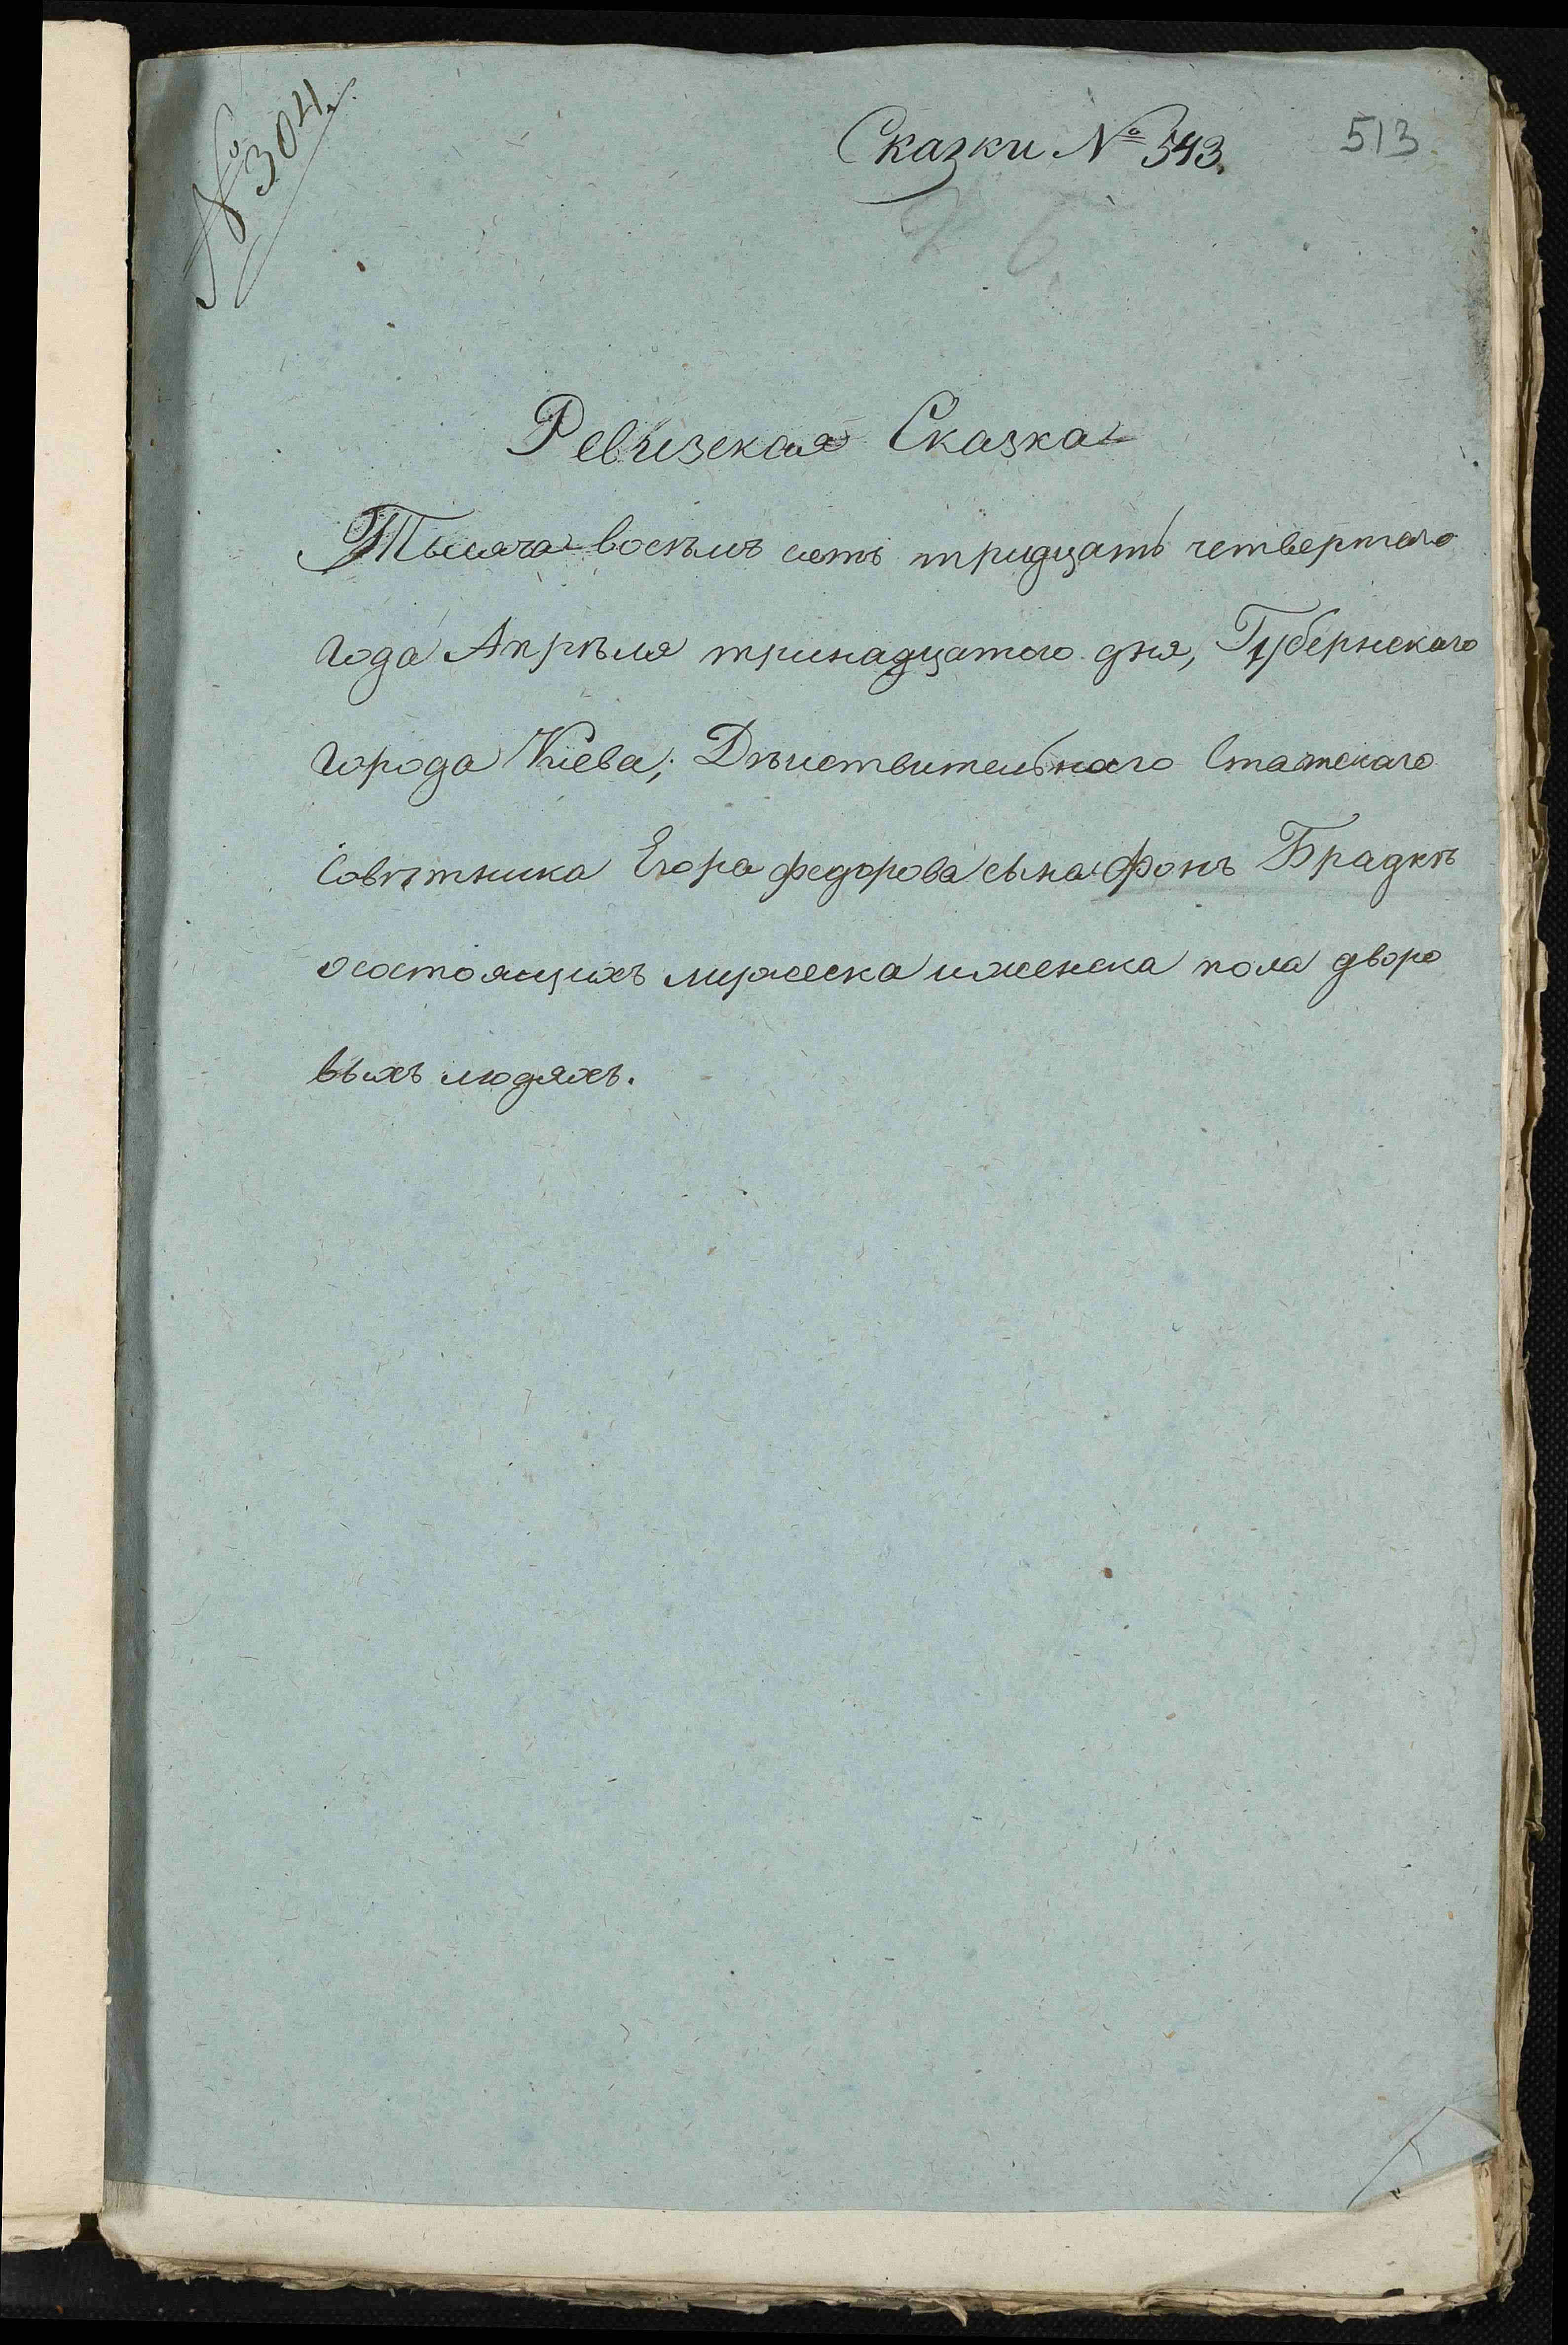 № 304.
Сказки № 543.
513
Ревизская Сказка
Тысяча восемъ сотъ тридцать четвертаго
года Апрѣля тринадцатого дня, Губернскаго
города Кіева; Дѣйствительнаго Статскаго
Совѣтника Егора Федорова сына Фонъ Брадкѣ
о состоящихъ мужеска и женска пола дворо
выхъ людяхъ.